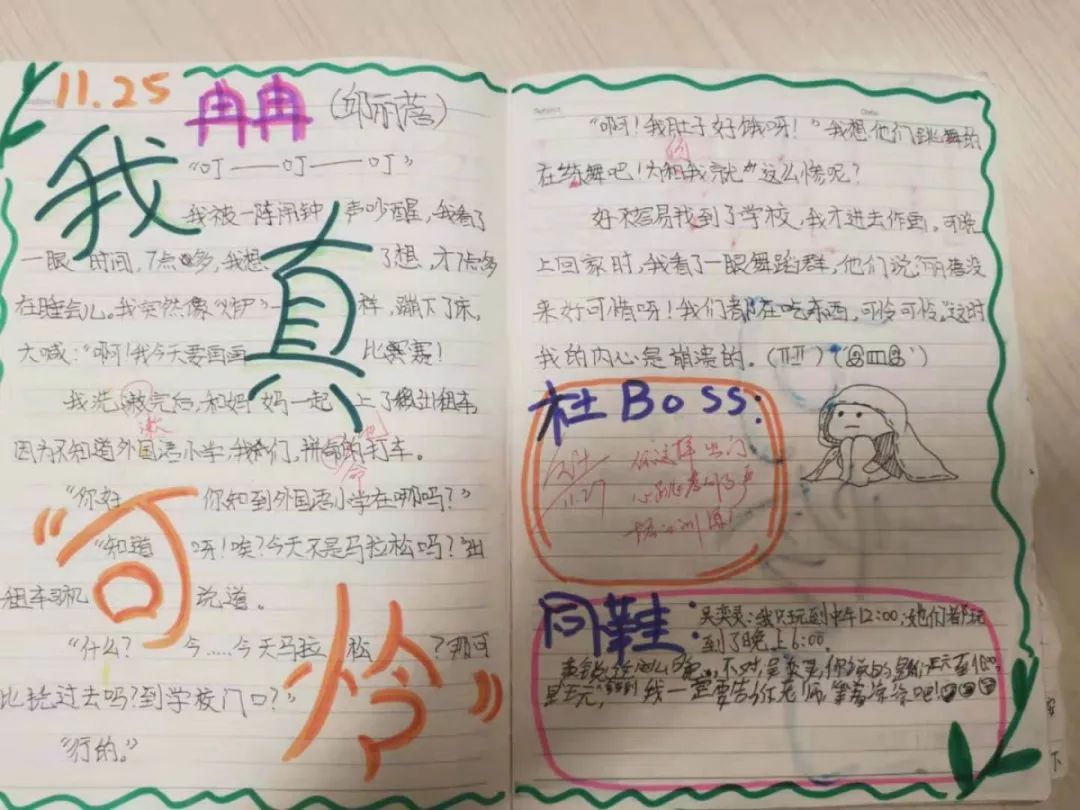 11.25 冉冉(邱丽蓓)
我真"可怜"
"叮——叮——叮"
我被一阵闹钟声吵醒,我看了
一眼时间,7点多,我想了想,才7点多
在睡会儿。我突然像"炉"一样,蹦下了床,
大喊:"啊!我今天要画画比赛赛!
我洗漱完后,和妈妈一起上了出租车,
漱
因为不知道外国语小学,我们,拼命的打车。
命
他
"你好 你知到外国语小学在哪吗?"
"知道呀!唉?今天不是马拉松吗?"出
租车司机说道。
"什么?今.....今天马拉松?那可
比挠过去吗?到学校门口?"
"行的。"
"啊!我肚子好饿呀!"我想他们跳舞的
的
在练舞吧!我就这么惨呢?
好不容易找到了学校,我才进去作画。可晚
上回家时,我看了一眼舞蹈群,他们说丽蓓没
来好可惜呀!我们都在吃东西,可怜可怜。这时
我的内心是崩溃的。
杜Boss:
你这样出门
11.27
同鞋:
吴奕灵:我只玩到中午12:00,她们都玩
到了晚上6:00.
不对,吴奕灵,你
我一定要告你老师,等着